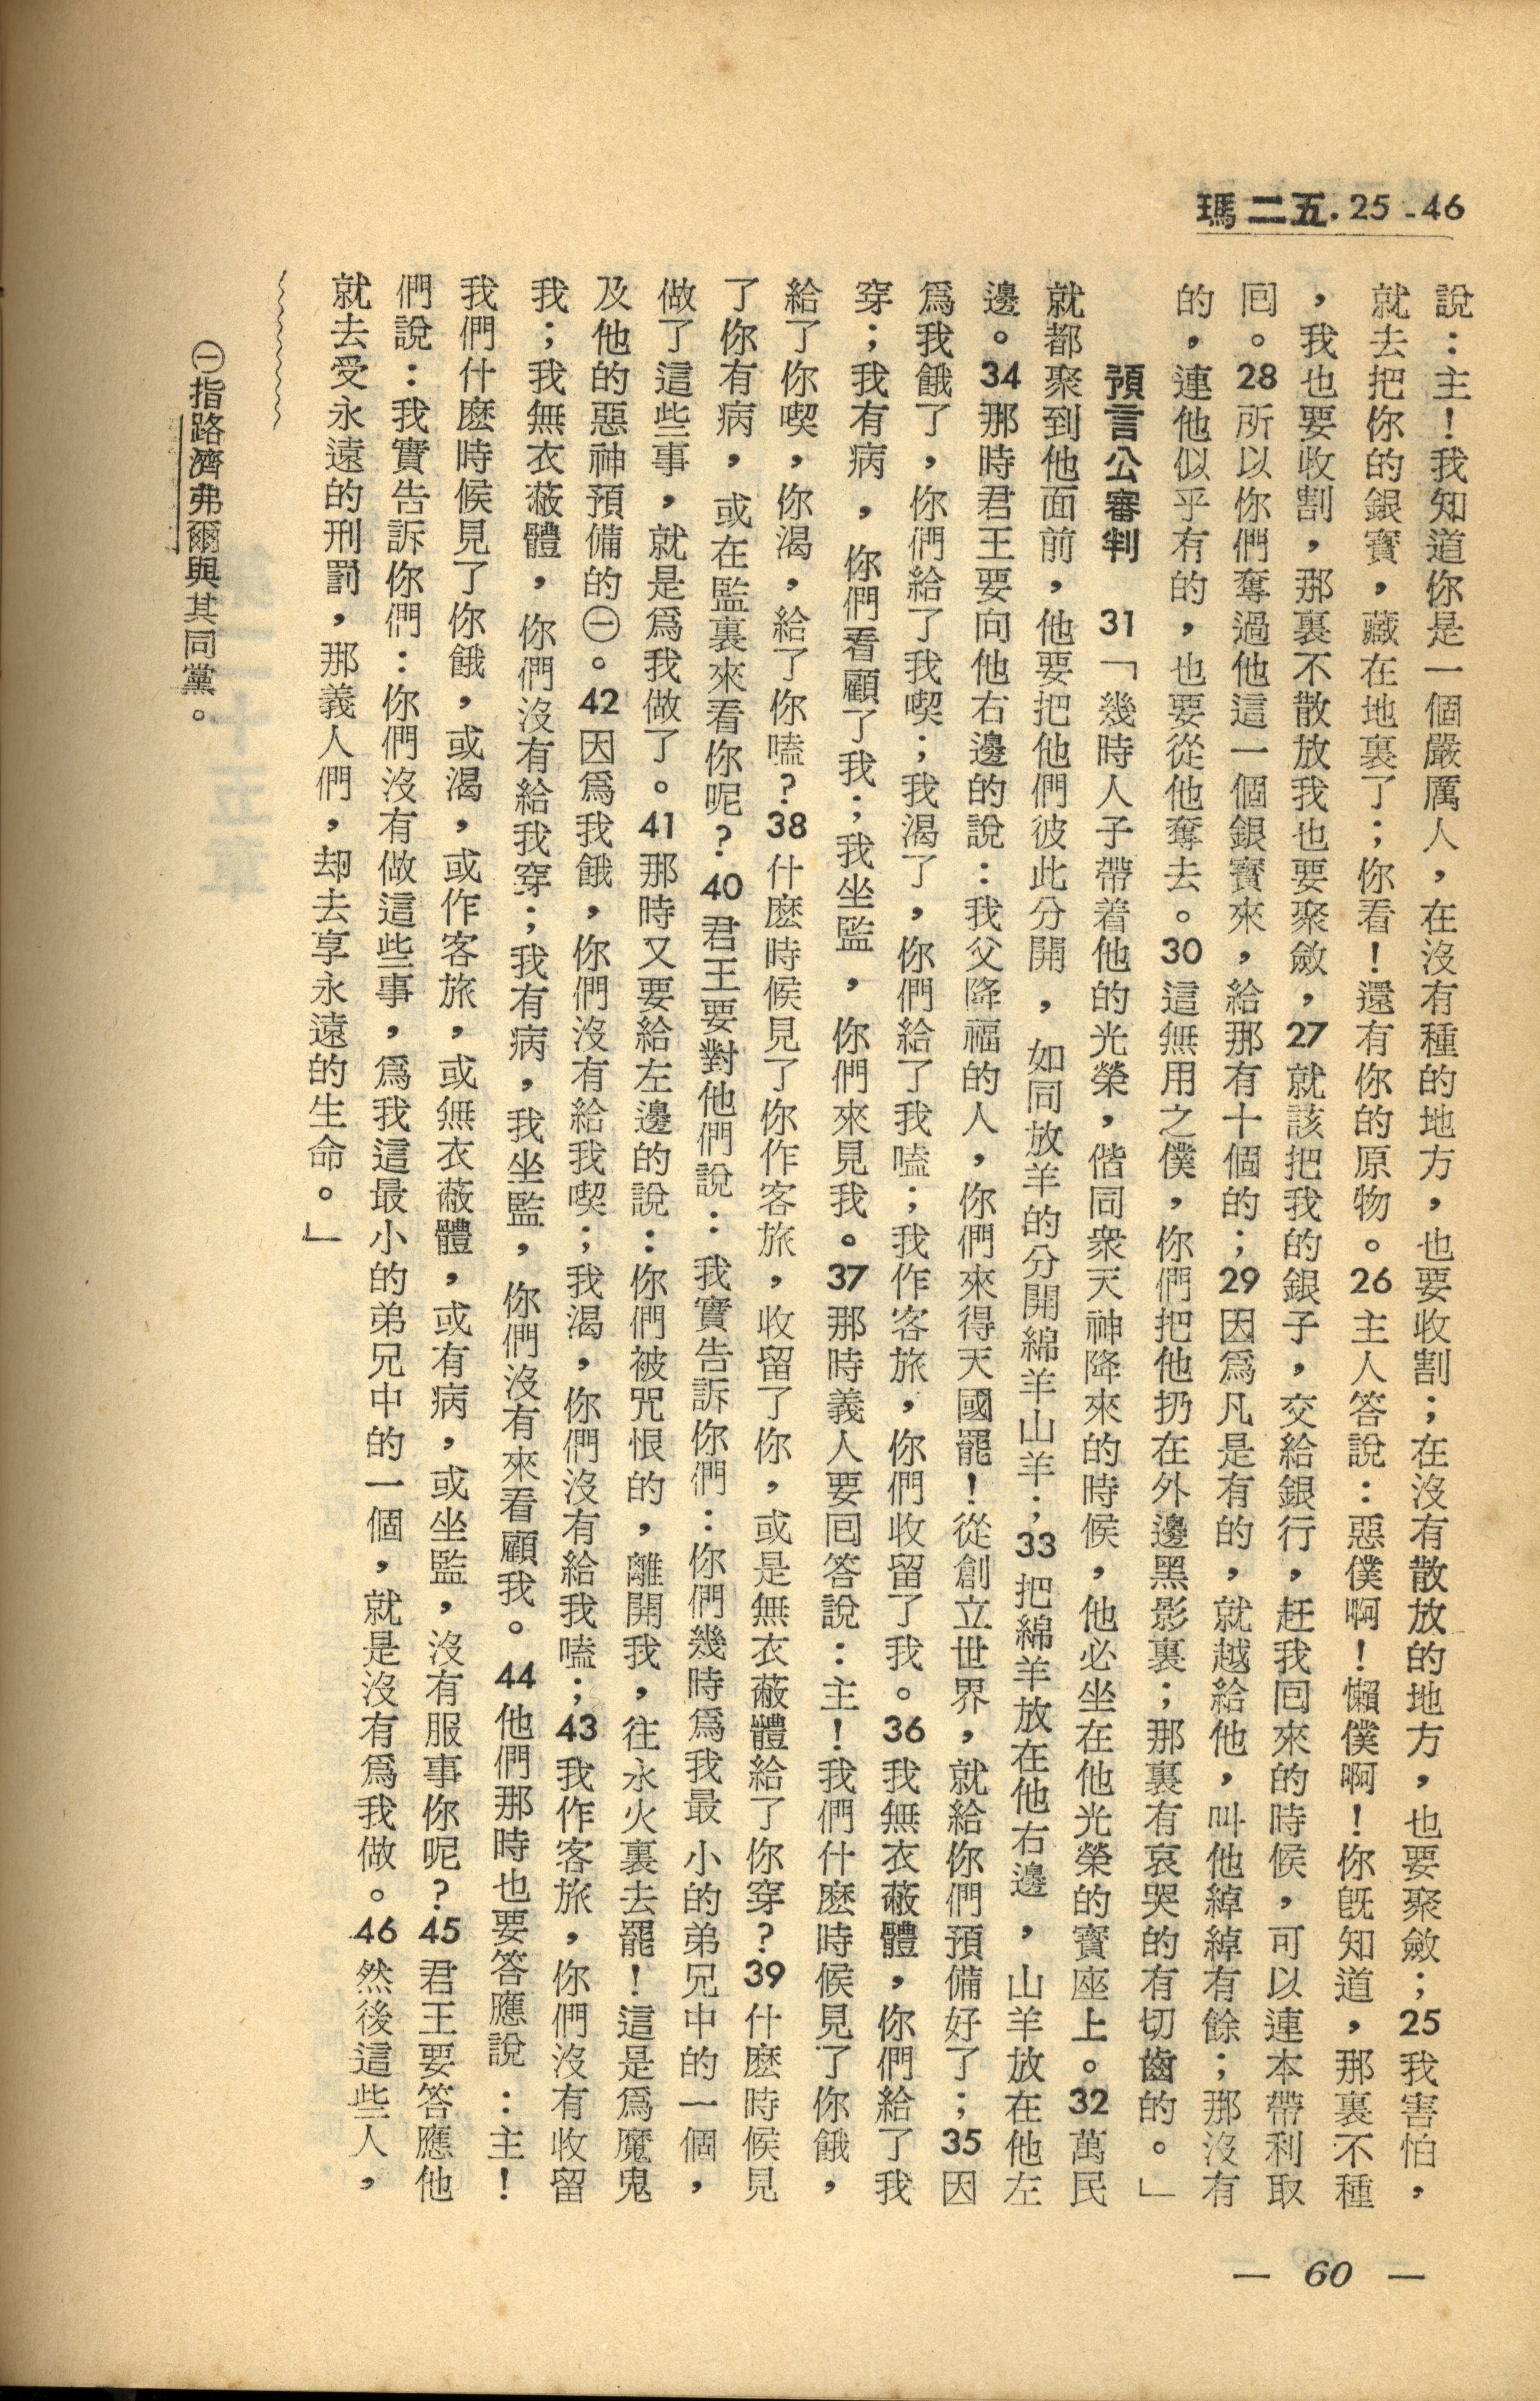 瑪二五.25-46
說：主！我知道你是一個嚴厲人，在沒有種的地方，也要收割；在沒有散放的地方，也要聚斂；25我害怕，
就去把你的銀寶，藏在地裏了；你看！還有你的原物。26主人答說：惡僕啊！懶僕啊！你既知道，那裏不種
，我也要收割，那裏不散放我也要聚斂，27就該把我的銀子，交給銀行，赶我囘來的時候，可以連本帶利取
囘。28所以你們奪過他這一個銀寶來，給那有十個的；29因爲凡是有的，就越給他，叫他綽綽有餘；那沒有
的，連他似乎有的，也要從他奪去。30這無用之僕，你們把他扔在外邊黑影裏；那裏有哀哭的有切齒的。」
預言公審判　31「幾時人子帶着他的光榮，偕同衆天神降來的時候，他必坐在他光榮的寶座上。32萬民
就都聚到他面前，他要把他們彼此分開，如同放羊的分開綿羊山羊；33把綿羊放在他右邊，山羊放在他左
邊。34那時君王要向他右邊的說：我父降福的人，你們來得天國罷！從創立世界，就給你們預備好了；35因
爲我餓了，你們給了我喫；我渴了，你們給了我嗑；我作客旅，你們收留了我。36我無衣蔽體，你們給了我
穿；我有病，你們看顧了我；我坐監，你們來見我。37那時義人要囘答說：主！我們什麽時候見了你餓，
給了你喫，你渴，給了你嗑？38什麽時候見了你作客旅，收留了你，或是無衣蔽體給了你穿？39什麽時候見
了你有病，或在監裏來看你呢？40君王要對他們說：我實告訴你們：你們幾時爲我最小的弟兄中的一個，
做了這些事，就是爲我做了。41那時又要給左邊的說：你們被咒恨的，離開我，往永火裏去罷！這是爲魔鬼
及他的惡神預備的㊀。42因爲我餓，你們沒有給我喫；我渴，你們沒有給我嗑；43我作客旅，你們沒有收留
我；我無衣蔽體，你們沒有給我穿；我有病，我坐監，你們沒有來看顧我。44他們那時也要答應說：主！
我們什麽時候見了你餓，或渴，或作客旅，或無衣蔽體，或有病，或坐監，沒有服事你呢？45君王要答應他
們說：我實告訴你們：你們沒有做這些事，爲我這最小的弟兄中的一個，就是沒有爲我做。46然後這些人，
就去受永遠的刑罰，那義人們，却去享永遠的生命。」
㊀指路濟弗爾與其同黨。
— 60 —